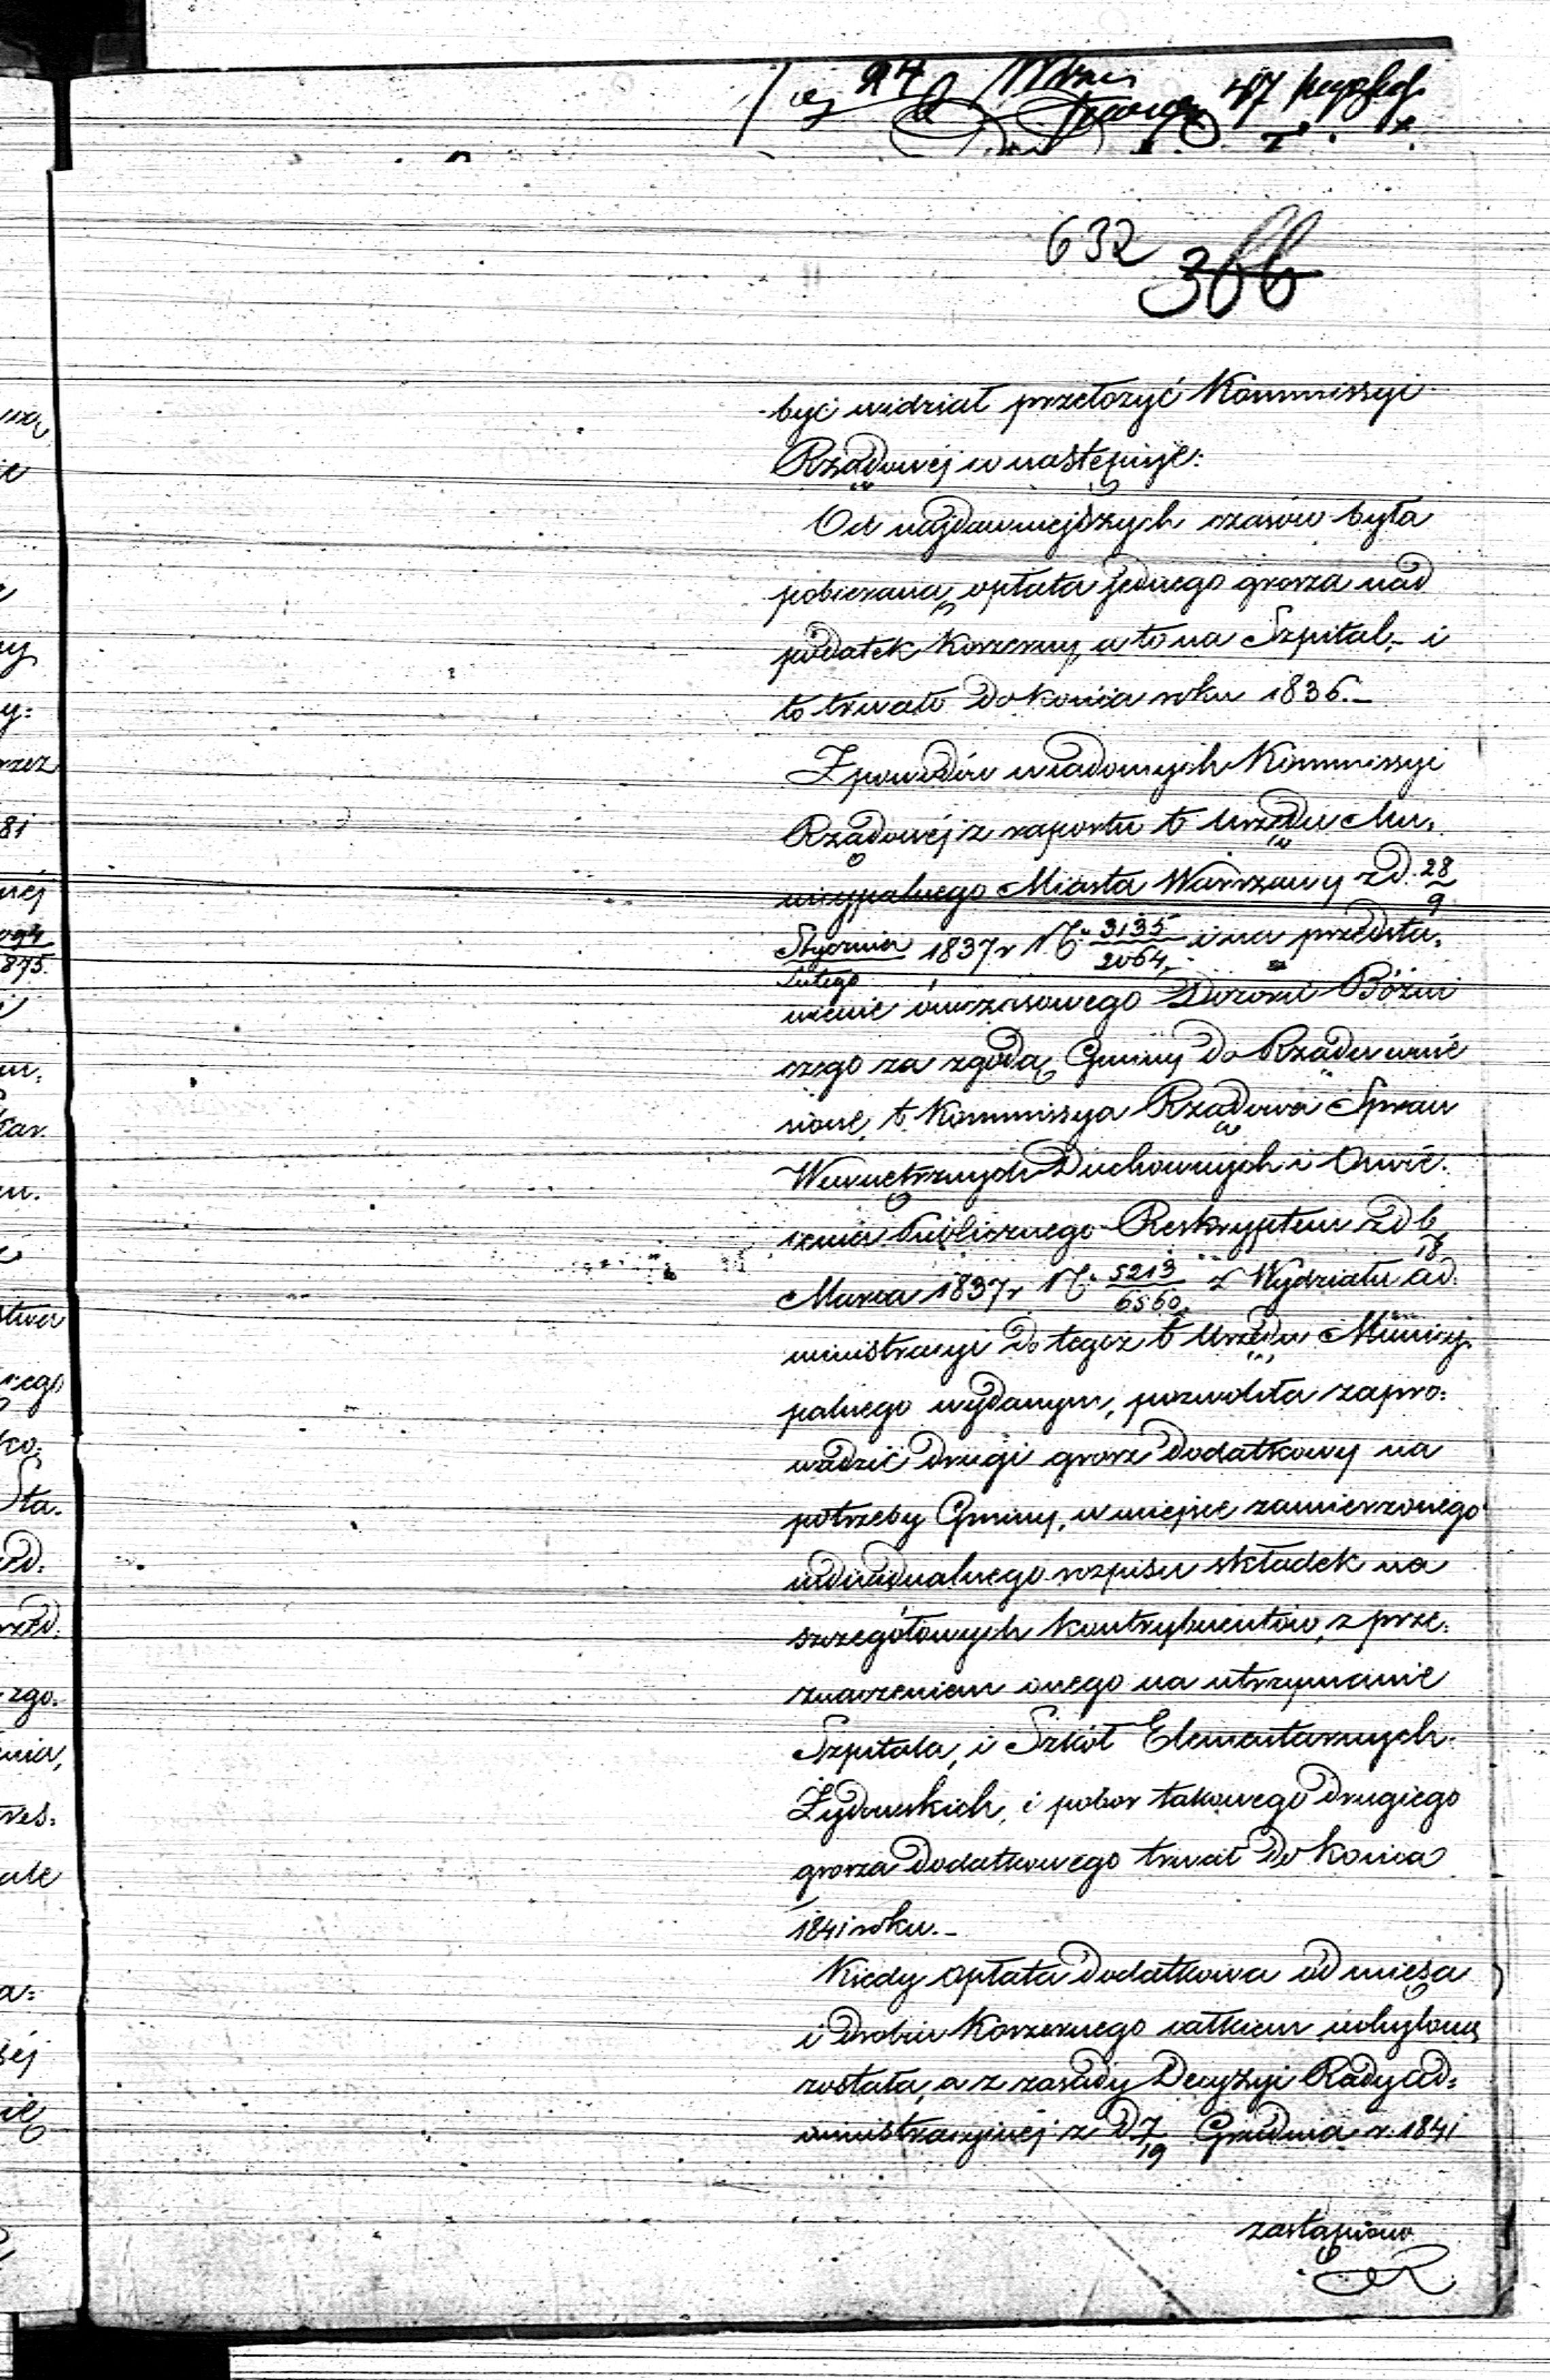 24
47
632 366
być widział przełożyć Kommissyi
Rządowéj co następuje:
Od najdawniejszych czasów była
pobierana, opłata jednego grosza nad
podatek koszerny, a to na Szpital, i
to trwało do końca roku 1836._
Z powodów wiadomych Kommissyi
Rządowéj z raportu b Urzędu Mu,
nicypalnego Miasta Warszawy z d. 28/9
Stycznia/Lutego 1837 r N. 3135/2064, i na przedsta,
wienie ówczasowego Dozoru Bóżni
czego za zgodą Gminy do Rządu wnie
sione, b. Kommissya Rządowa Spraw
Wewnętrznych Duchownych i Oświe:
cenia Publicznego Reskryptem z d 6/18
Marca 1837 r N. 5213/6560, z Wydziału ad:
ministracyi do tegoż b Urzędu Municy:
palnego wydanym, pozwoliła zapro:
wadzić drugi grosz dodatkowy na
potrzeby Gminy, w miejsce zamierzonego
indiwidualnego rozpisu składek na
szczegółowych kontrybuentów, z prze:
znaczeniem onego na utrzymanie
Szpitala, i Szkół Elementarnych
Żydowskich, i pobor takowego drugiego
grosza dodatkowego trwał do końca
1841 roku._
Kiedy opłata dodatkowa od mięsa
i drobiu koszernego całkiem uchyloną
została, a z zasady Decyzyi Rady Ad:
ministracyjnéj z d 7/19 Grudnia r. 1841
zastąpiono